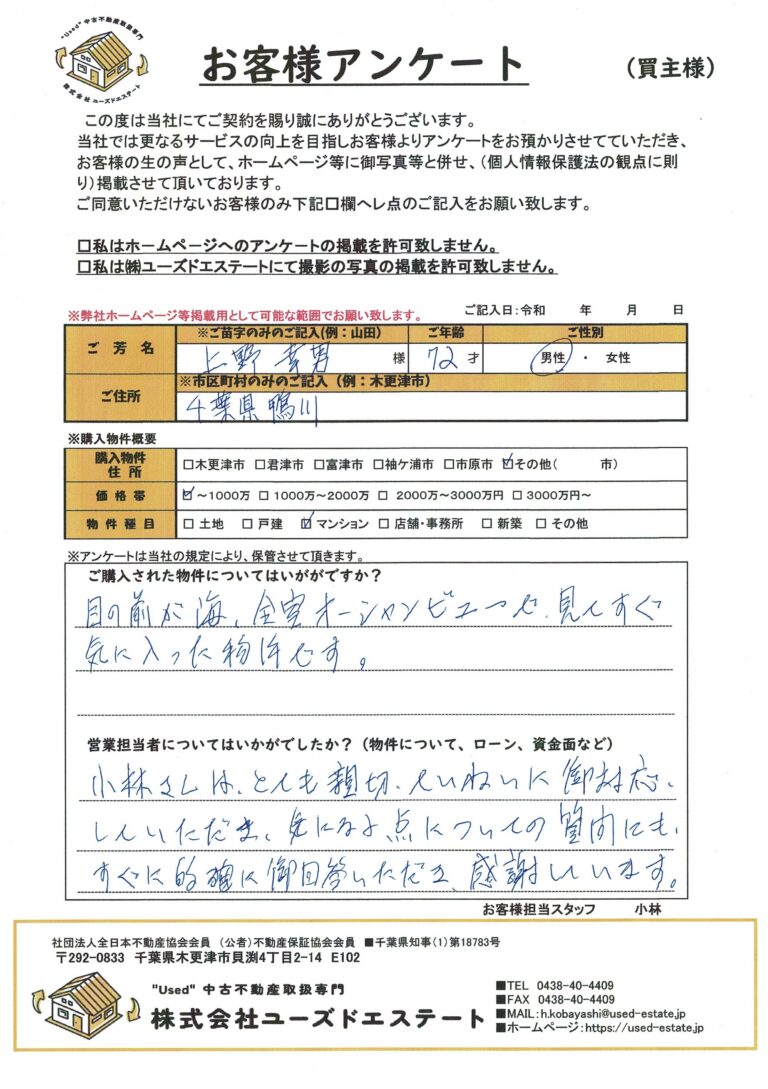 "Used" 中古不動産取扱専門
株式会社ユーズドエステート
お客様アンケート
(買主様)
この度は当社にてご契約を賜り誠にありがとうございます。
当社では更なるサービスの向上を目指しお客様よりアンケートをお預かりさせてていただき、
お客様の生の声として、ホームページ等に御写真等と併せ、(個人情報保護法の観点に則
り)掲載させて頂いております。
ご同意いただけないお客様のみ下記口欄へレ点のご記入をお願い致します。
□私はホームページへのアンケートの掲載を許可致しません。
□私は㈱ユーズドエステートにて撮影の写真の掲載を許可致しません。
ご記入日:令和 年 月 日
※弊社ホームページ等掲載用として可能な範囲でお願い致します。
ご芳名 ※ご苗字のみのご記入(例:山田) ご年齢 ご性別
上野 幸男 様 72才 男性 ・ 女性
ご住所 ※市区町村のみのご記入(例:木更津市)
千葉県鴨川
※購入物件概要
購入物件住所 □木更津市 □君津市 □富津市 □袖ケ浦市 □市原市 ☑その他( 市)
価格帯 ☑~1000万 □ 1000万~2000万 □ 2000万~3000万円 □ 3000万円~
物件種目 □ 土地 □ 戸建 ☑ マンション □ 店舗・事務所 □ 新築 □ その他
※アンケートは当社の規定により、保管させて頂きます。
ご購入された物件についてはいががですか?
目の前が海、全室オーシャンビューで、見てすぐ
気に入った物件です。
営業担当者についてはいかがでしたか?(物件について、ローン、資金面など)
小林さんは、とても親切、ていねいに御対応、
していただき、気になる点についての質問にも、
すぐに的確に御回答いただき、感謝しています。
お客様担当スタッフ 小林
社団法人全日本不動産協会会員 (公者)不動産保証協会会員 ■千葉県知事(1)第18783号
〒292-0833 千葉県木更津市貝渕4丁目2-14 E102
"Used" 中古不動産取扱専門
株式会社ユーズドエステート
■TEL 0438-40-4409
■FAX 0438-40-4409
■MAIL:h.kobayashi@used-estate.jp
■ホームページ:https://used-estate.jp